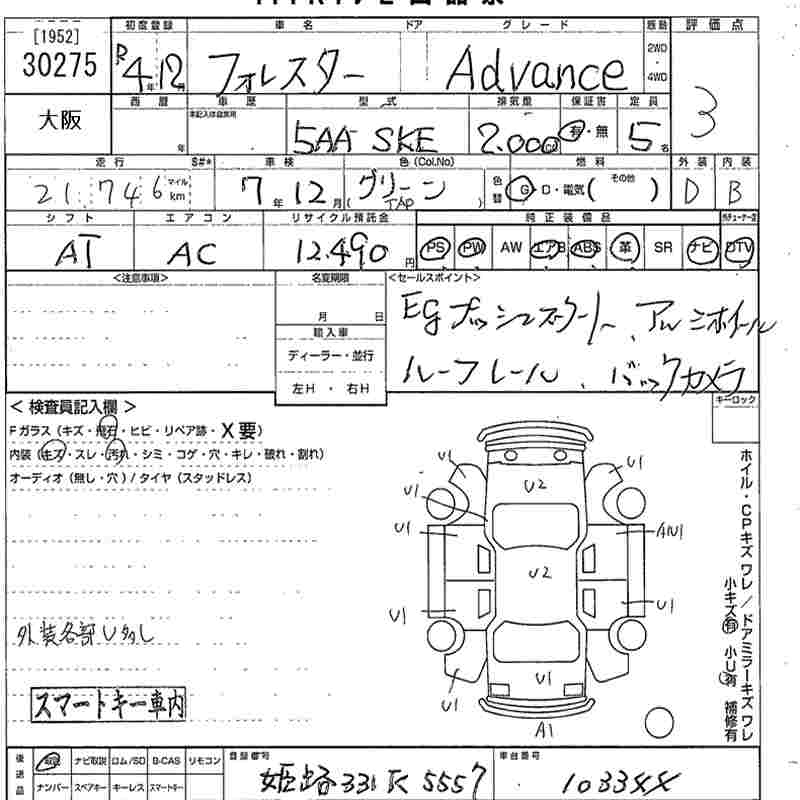 [1952]
30275
大阪
初度登録 車名 ドア グレード 駆動 評価点
R4年12月 フォレスター Advance 2WD 4WD 3
西暦 車歴 型式 排気量 保証書 定員
年 本記入は自家用 5AA SKE 2.000cc 有・無 5名
走行 S#* 車検 色(Col.No) 燃料 外装 内装
21,746 マイル km 7年12月 グリーン (TAP) 色替 G・D・電気( その他 ) D B
シフト エアコン リサイクル預託金 純正装備品
AT AC 12.490円 PS PW AW エアB ABS 革 SR ナビ DTV
<注意事項> 名変期限 <セールスポイント>
月 日
Egプッシュスタート、アルミホイール
輸入車
ディーラー・並行
ルーフレール、バックカメラ
左H・右H
キーロック
< 検査員記入欄 >
Fガラス(キズ・飛石・ヒビ・リペア跡・X要)
内装(キズ・スレ・汚れ・シミ・コゲ・穴・キレ・破れ・割れ)
オーディオ(無し・穴)/タイヤ(スタッドレス)
U1 U1
U2
U1
U1 A1U1
U2
U1 U1
U1 U1
U1
A1
ホイル・CPキズ ワレ/ドアミラーキズ ワレ
小キズ有 小U有 補修有
外装各部U多し
スマートキー車内
後送品 取説 ナビ取説 ロム/SD B-CAS リモコン 登録番号 車台番号
ナンバー スペアキー キーレス スマートキー 姫路 331 5557 1033XX